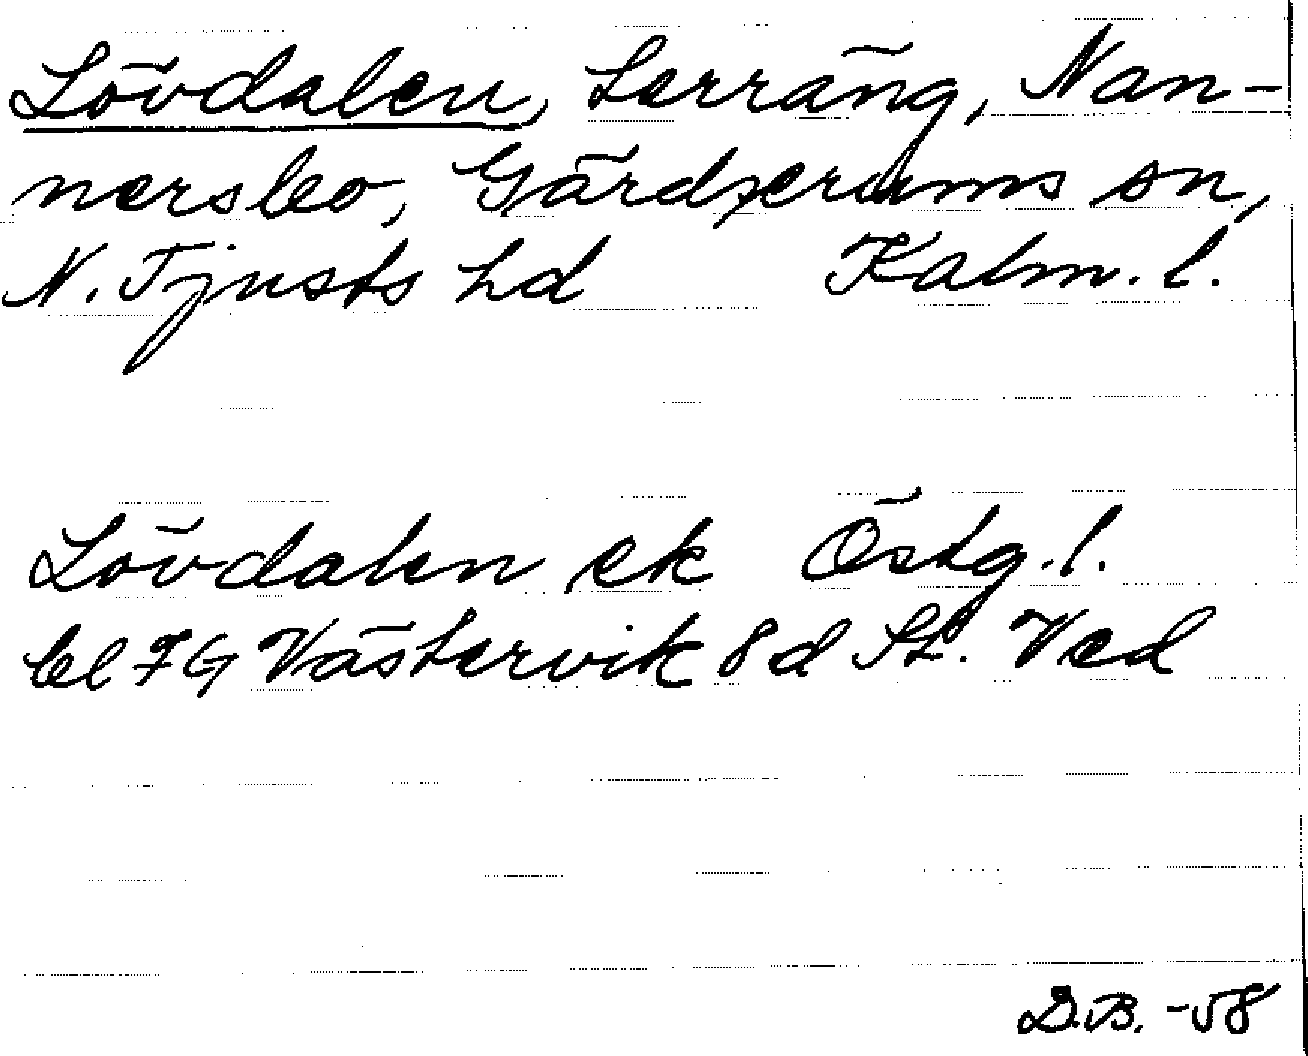 Lövdalen, terräng, Nan-
nersbo, Gärdserums sn,
N. Tjusts hd Kalm. l.
Lövdalen ek Östg. l.
bl 7G Västervik 8d St. Ved
D.B. -58